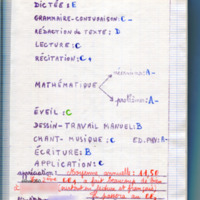 DICTÉE : E
GRAMMAIRE-CONJUGAISON : C-
RÉDACTION DE TEXTE : D
LECTURE : C
RÉCITATION : C+
numération : A-
MATHÉMATIQUE
problèmes : A-
ÉVEIL : C
DESSIN-TRAVAIL MANUEL : B
CHANT-MUSIQUE : C ED. PHYS : A-
ÉCRITURE : B
APPLICATION : C
appréciation : Moyenne annuelle : 11,50
a fait beaucoup de
surtout en lecture et français